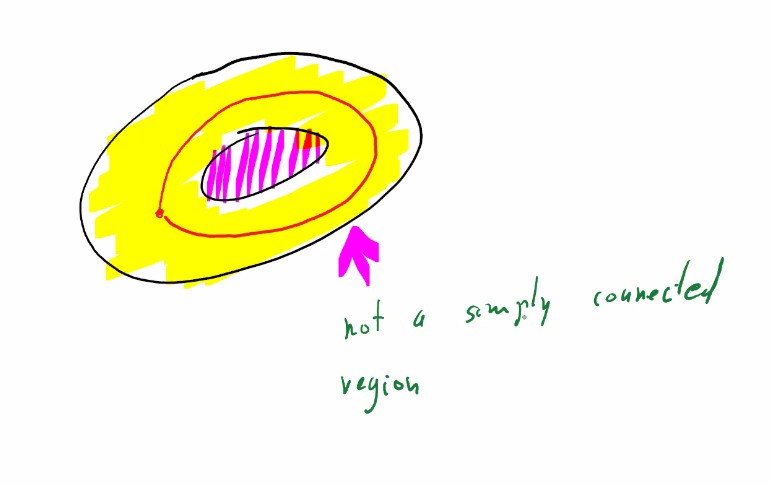 not a simply connected
region